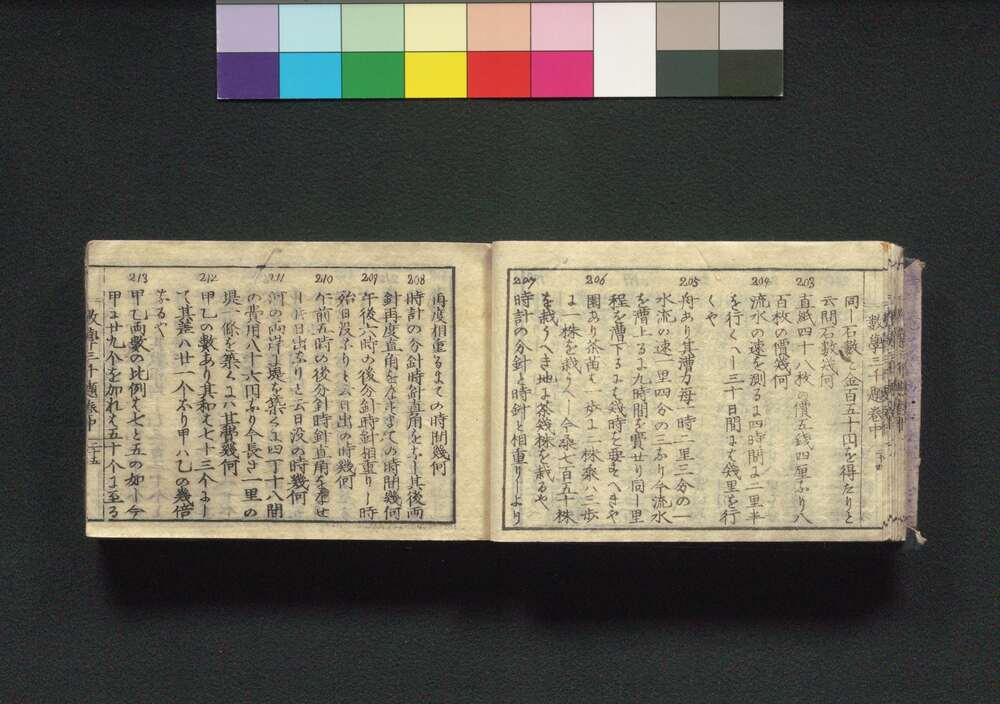 數學三千題卷中
同一石數ヒ金百五十円を得たりと
云問石數幾何
203
直紙四十八枚の價五錢四厘なり八
百枚の價幾何
204
流水の速を測るに四時間に二里半
を行くべし三十日間に幾里を行
くや
205
舟あり其漕力毎一時二里三分の一
水流の速一里四分の三なり今流水
を漕上るに九時間を費せり同一里
程を漕下るには幾時を要すへきや
206
園あり茶苗は一歩に二株桑は三歩
に一株を栽うべし今桑七百五十株
を栽うへき地に茶幾株を栽るや
207
時計の分針と時針と相重りしより
再度相重るまての時間幾何
208
時計の分針時針直角をなし其後両
針再度直角をなすまての時間幾何
209
午後六時の後分針時針相重りし時
始日没なりと云日出の時幾何
210
午前五時の後分針時針直角を為せ
し時日出なりと云日没の時幾何
211
河の両岸に堤を築くに四丁十八間
の費用八十六円なり今長さ一里の
堤一條を築くには其費幾何
212
甲乙の數あり其和は七十三个にし
て其差は廿一个なり甲は乙の幾倍
なるや
213
甲乙両數の比例は七と五の如し今
甲に廿九个を加れは五十个に至る
數學三千題卷中 二十五